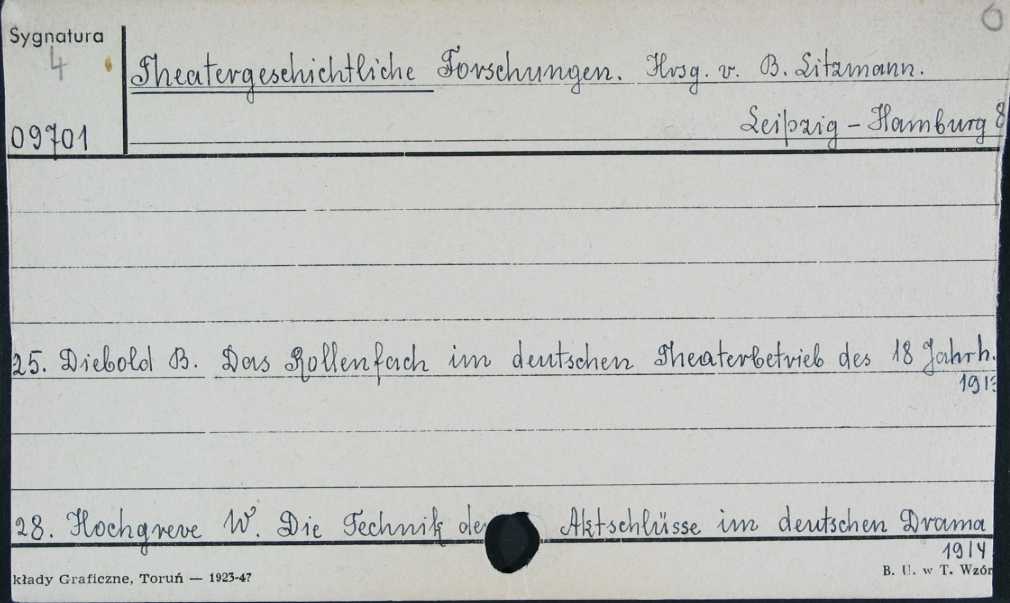 6
Sygnatura
4
Theatergeschichtliche Forschungen. Hrsg. v. B. Litzmann.
09701
Leipzig – Hamburg 8
25. Diebold B. Das Rollenfach im deutschen Theaterbetrieb des 18 Jahrh.
1913
28. Hochgreve W. Die Technik der Aktschlüsse im deutschen Drama
1914
kłady Graficzne, Toruń — 1923-47
B. U. w T. Wzór